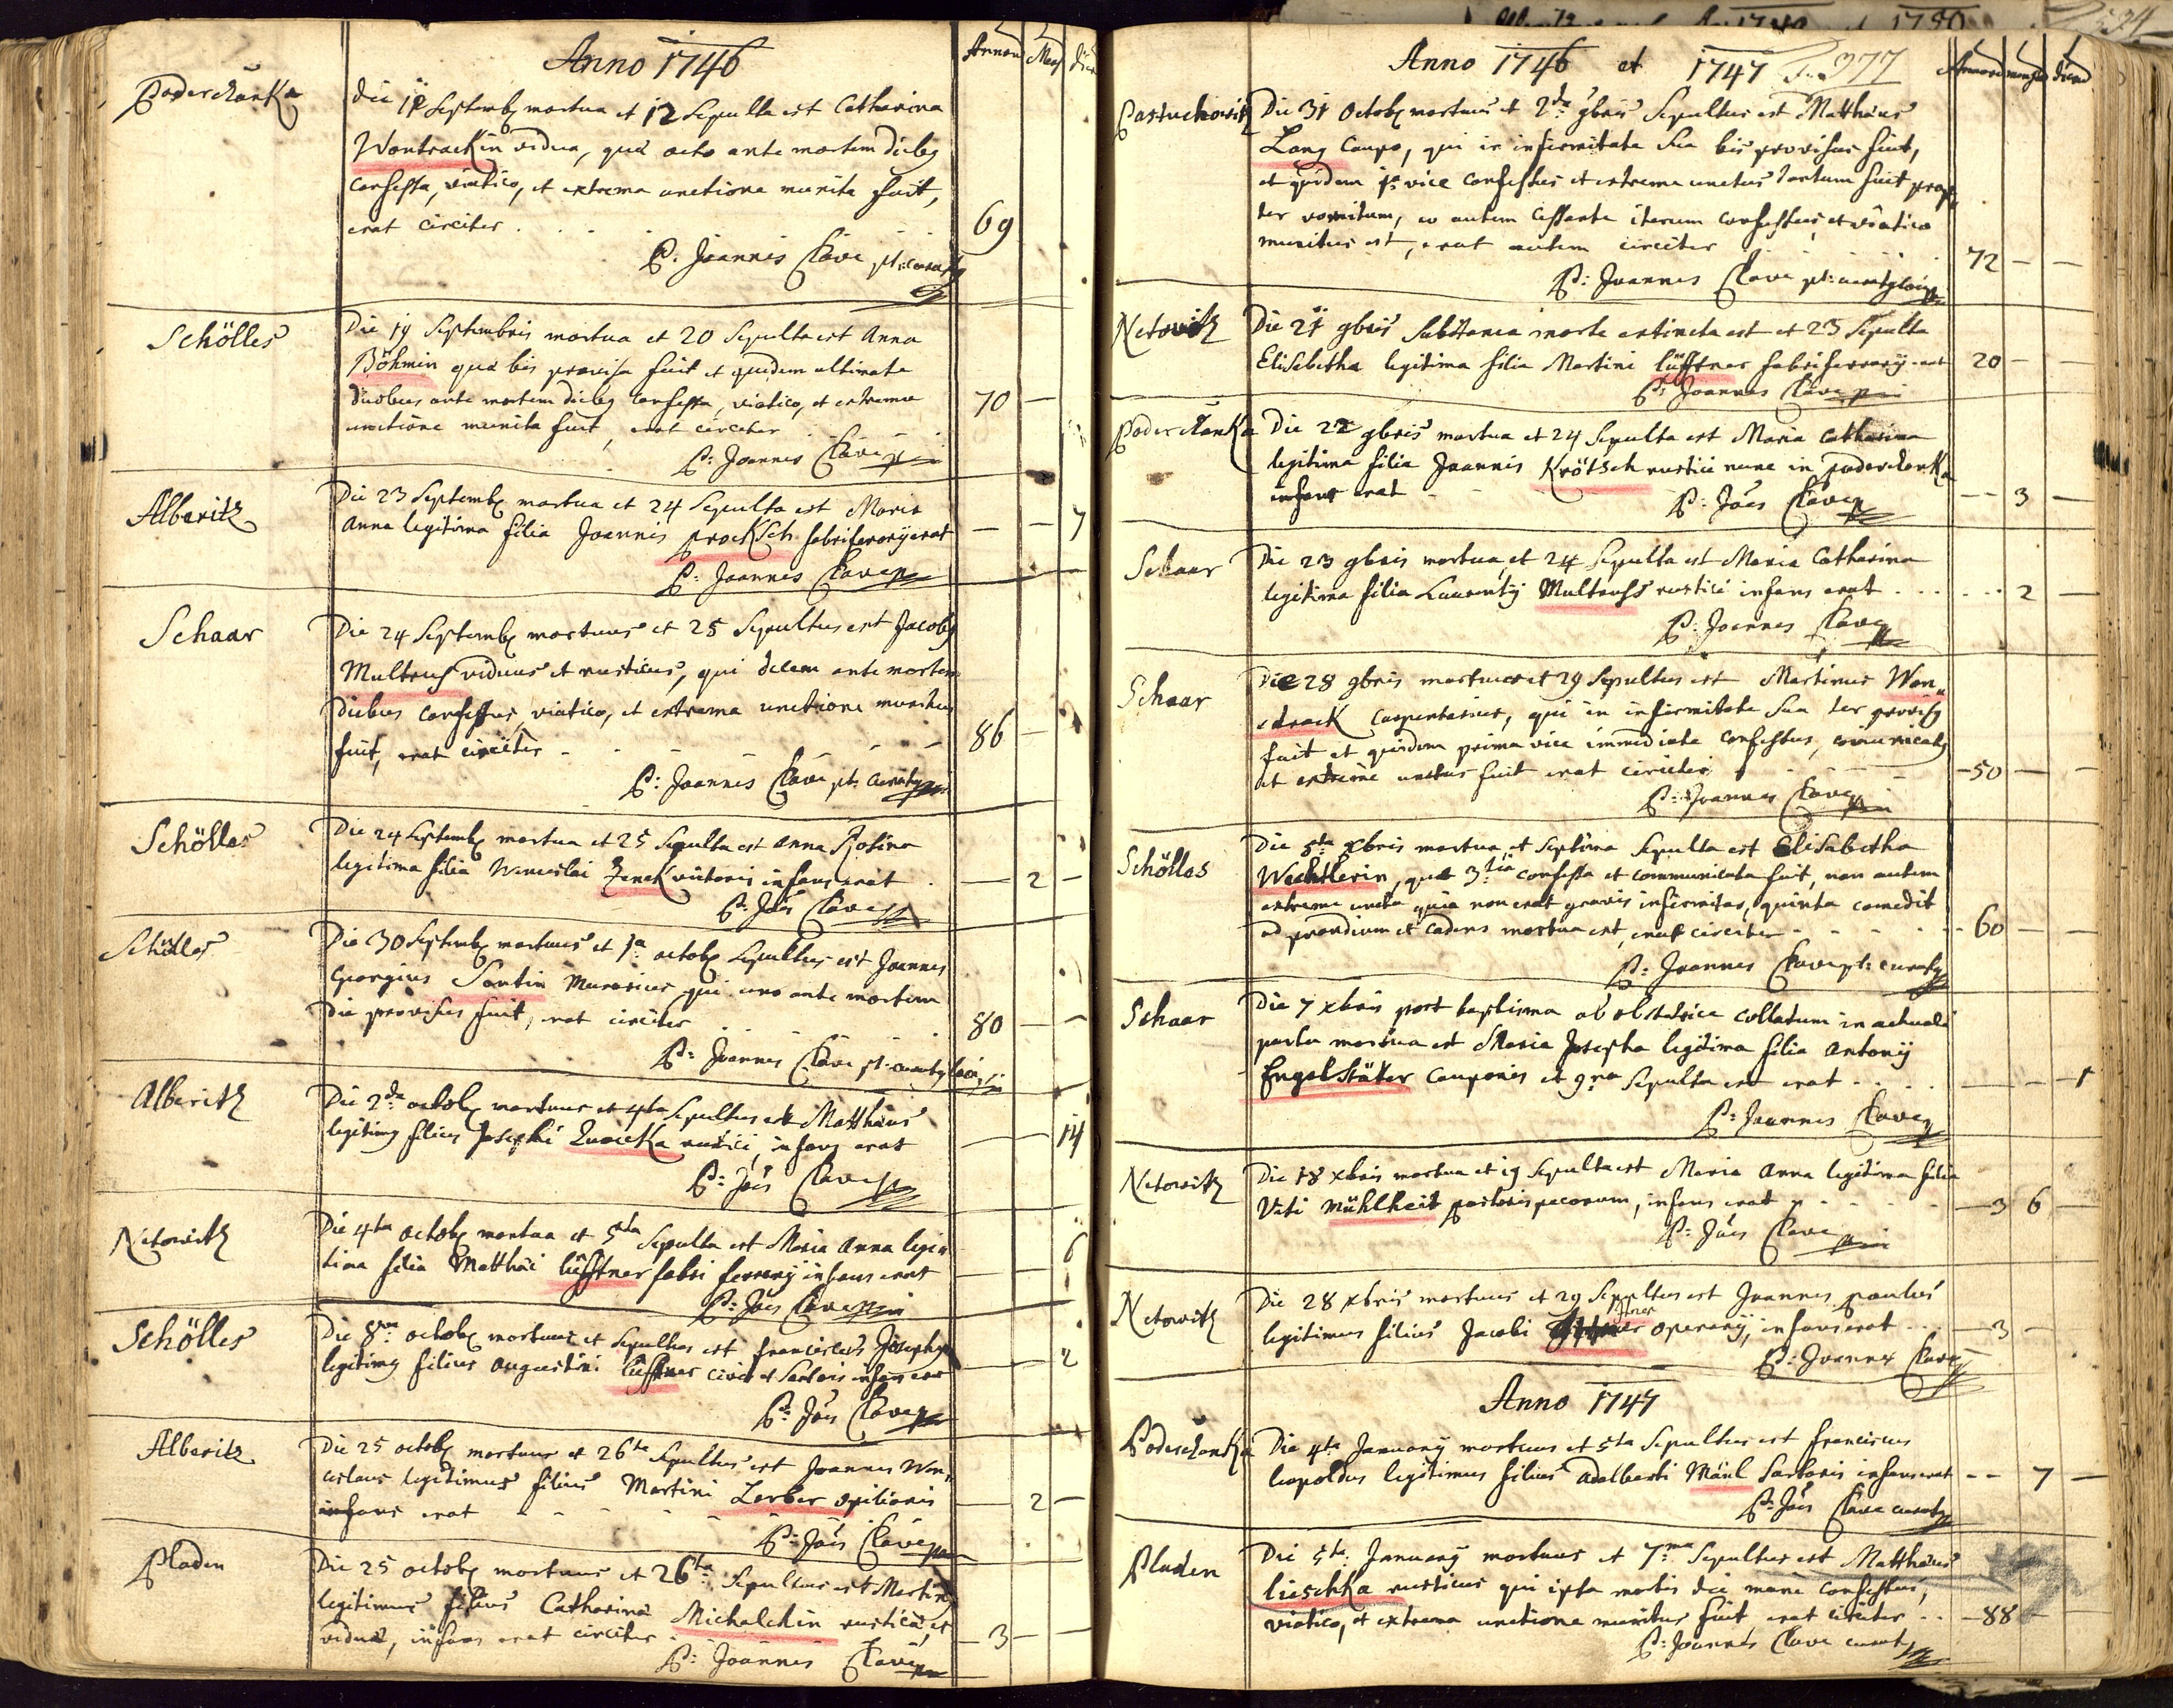 Anno 1746
Annorum Mens Dies
Poderschanka
Die 11 Septembr mortua et 12 Sepulta est Catharina
Wontrackin vidua, quæ octo ante mortem dieb9
confessa, viatico, et extrema unctione munita fuit,
erat circiter . . . 69
P. Joannes Clave pt: curat9
Schölles
Die 19 Septembris mortua et 20 Sepulta est Anna
Böhmin quæ bis provisa fuit et quidem ultimate
duobus ante mortem dieb9 confessa, viatico, et extrema
unctione munita fuit, erat circiter 70 —
P: Joannes Clave
Alberitz
Die 23 Septembr mortua et 24 Sepulta est Maria
Anna legitima filia Joannis Procksch fabri ferrarij erat — — 7
P: Joannes Clave
Schaar
Die 24 Septembr mortuus et 25 Sepultus est Jacob9
Multrus viduus et rusticus, qui decem ante mortem
diebus confessus, viatico, et extrema unctione munitus
fuit, erat circiter - - - 86 —
P: Joannes Clave pt: Curat9
Schölles
Die 24 Septembr mortua et 25 Sepulta est Anna
legitima filia Wenceslai Zenek infans erat . — 2 —
P: Jães Clave
Schölles
Die 30 Septembr mortuus et 1a octobr Sepultus est Joannes
Georgius Santin Murarius qui uno ante mortem
Die provisus fuit, erat circiter . . . 80 — —
P: Joannes Clave pt: curat9 loci
Alberitz
Die 2da octobr mortuus et 4ta Sepultus est Matthæus
legitim9 filius Josephi rustici, infans erat — — 14
P: Jães Clave
Netowitz
Die 4ta octobr mortua et 5ta Sepulta est Maria Anna legi„
tima filia Matthæi lüfftner fabri ferrarij infans erat — — 6
P: Jães Clave
Schölles
Die 8va octobr mortuus et Sepultus est Franciscus Joseph9
legitim9 filius Augustini lüfftner civis et Sartoris infans erat — 2
P: Jães Clave
Alberitz
Die 25 octobr mortuus et 26ta Sepultus est Joannes Wen„
ceslaus legitimus filius Martini Lerber opilionis
infans erat - - - — 2 —
P: Jães Clave
Pladen
Die 25 octobr mortuus et 26ta Sepultus est Martin9
legitimus filius Catharinæ Michalckin rusticæ, et
viduæ, infans erat circiter . — 3 — —
P: Joannes Clave
Anno 1746 et 1747 377
Annorum menses dierum
Pastuchowitz
Die 31 Octobr mortuus et 2da 9bris Sepultus est Matthæus
Lang Caupo, qui in infirmitate Sua bis provisus fuit,
et quidem 1a vice confessus et extreme unctus tantum fuit prop„
ter vomitum, eo autem cessante iterum confessus, et viatico
munitus est, erat autem circiter . . . 72 — —
P: Joannes Clave pt: curat9 loci
Netowitz
Die 21 9bris Subitanea morte extincta est et 23 Sepulta
Elisabetha legitima filia Martini lüfftner fabri ferrarij erat 20 — —
P: Joannes Clave
Poderschanka
Die 22 9bris mortua et 24 Sepulta est Maria Catharina
legitima filia Joannis Krötsch rustici nunc in Poderschanka
infans erat - - - — 3 —
P: Jães Clave
Schaar
Die 23 9bris mortua, et 24 Sepulta est Maria Catharina
legitima filia Laurentij Multruss rustici infans erat . . . 2 —
P: Joannes Clave
Schaar
Die 28 9bris mortuus et 29 Sepultus est Martinus Won„
drack Carpentarius, qui in infirmitate Sua ter provis9
fuit et quidem prima vice immediate confessus, comunicat9
et extreme unctus fuit erat circiter - - - 50 — —
P: Joannes Clave
Schölles
Die 5ta Xbris mortua et Septima Sepulta est Elisabetha
Wechtlerin, quæ 3tia confessa et communicata fuit, non autem
extreme uncta quia non erat gravis infirmitas, quinta comedit
ad prandium et cadens mortua est, erat circiter - - - 60 — —
P: Joannes Clave pt: curat9
Schaar
Die 7 Xbris post baptisma ab obstetrice collatum in actuali
partu mortua est Maria Josepha legitima filia Antonij
Engelstäter Cauponis et 9na Sepulta est erat . . . — — 1
P: Joannes Clave
Netowitz
Die 18 Xbris mortua et 19 Sepulta est Maria Anna legitima filia
Viti Mühlheit pastoris pecorum, infans erat - - - 3 6 —
P: Jães Clave
Netowitz
Die 28 Xbris mortuus et 29 Sepultus est Joannes Paulus
legitimus filius Jacobi operarij, infans erat . . . — 3 —
P: Joannes Clave
Anno 1747
Poderschanka
Die 4ta Januarij mortuus et 5ta Sepultus est Franciscus
Leopoldus legitimus filius Adalberti Mänl Sartoris infans erat - - 7 —
P: Jães Clave curat9
Pladen
Die 5ta Januarij mortuus et 7ma Sepultus est Matthæus
Lieschka rusticus qui ipsa mortis die mane confessus,
viatico, et extrema unctione munitus fuit, erat circiter . . 88 —
P: Joannes Clave curat9